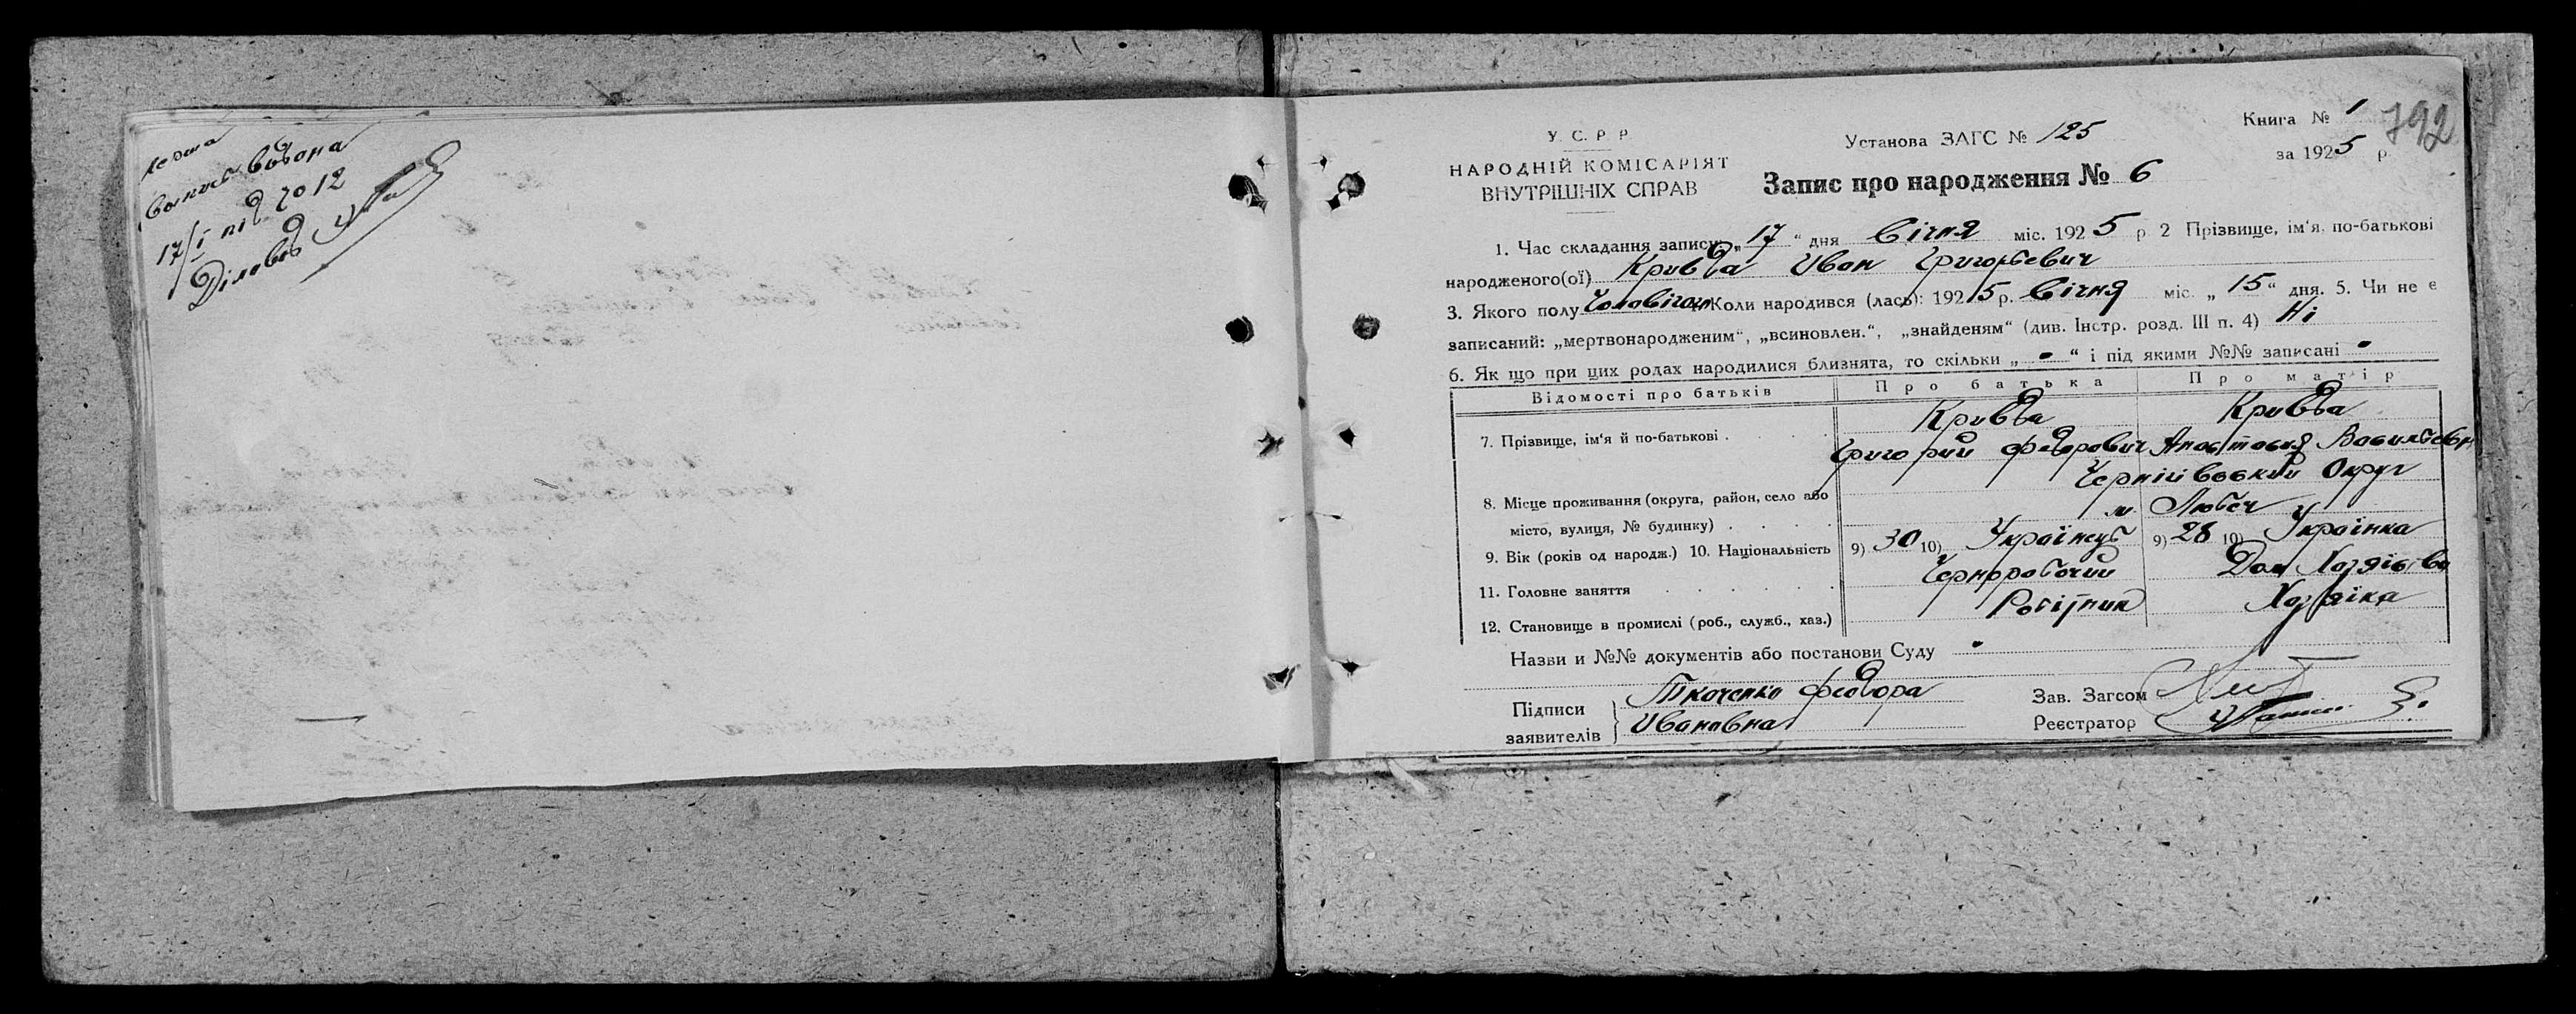 перша
выпись выдана
17/I під № 12
Діловод
У. С. Р. Р.
НАРОДНІЙ КОМІСАРІЯТ
ВНУТРІШНІХ СПРАВ
Установа ЗАГС № 125
Книга № 1
792
за 1925 р.
Запис про народження № 6
1. Час складання запису „17“ дня Січня міс. 1925 р 2 Прізвище, ім'я, по-батькові
народженого(ої) Кривда Иван Григорьевич
3. Якого полу Чоловічого 4. Коли народився (лась): 1925 р. Січня міс. „15“ дня. 5. Чи не є
записаний: „мертвонародженим“, „всиновлен.“, „знайденям“ (див. Інстр. розд. III п. 4) Ні
6. Як що при цих родах народилися близнята, то скільки „-“ і під якими №№ записані -
Відомості про батьків Про батька Про матір
Кривда Кривда
7. Прізвище, ім'я й по-батькові . . . . . Григорий Федорович Анастасия Васильевн
Чернігівський Округ
8. Місце проживання (округа, район, село або
м. Любеч
місто, вулиця, № будинку) . . . .
9. Вік (років од народж.) 10. Національність 9) 30 10) Українець 9) 28 10) Українка
Чернорабочий Дом Хозяйство
11. Головне заняття . . . . . .
Робітник Хозяйка
12. Становище в промислі (роб., служб., хаз.)
Назви и №№ документів або постанови Суду -
Підписи заявителів Ткаченко Феодора
Ивановна
Зав. Загсом
Реєстратор